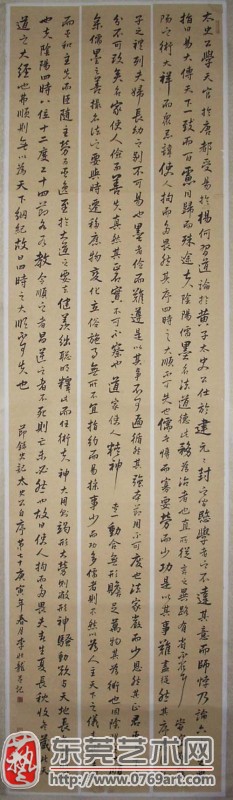 太史公學天官於唐都受易於楊何習道論於黃子太史公仕於建元元封之間愍學者之不達其意而師悖乃論六
易大傳天下一致而百慮同歸而殊途夫陰陽儒墨名法道德此務為治者也直所從言之異路有省不省
陽之術大祥而眾忌諱使人拘而多所畏然其序四時之大順不可失也儒者博而寡要勞而少功是以其事難盡從然其序
子之禮列夫婦長幼之別不可易也墨者儉而難遵是以其事不可遍循然其彊本節用不可廢也法家嚴而少恩然其正君臣
分不可改矣名家使人儉而善失真然其正名實不可不察也道家使人精神專一動合無形贍足萬物其為術也因陰陽
采儒墨之善撮名法之要與時遷移應物變化立俗施事無所不宜指約而易操事少而功多儒者則不然以為人主天下之儀
而臣和主先而臣隨主勞而臣逸至於大道之要去健羨絀聰明釋此而任術夫神大用則竭形大勞則敝形神騷動欲與天地長
也夫陰陽四時八位十二度二十四節各有教令順之者昌逆之者不死則亡未必然也故曰使人拘而多畏夫春生夏長秋收冬藏
道之大經也弗順則無以為天下綱紀故曰四時之大順不可失也
節錄史記太史公自序 庚寅年春月李
东莞艺术网
www.0769art.com